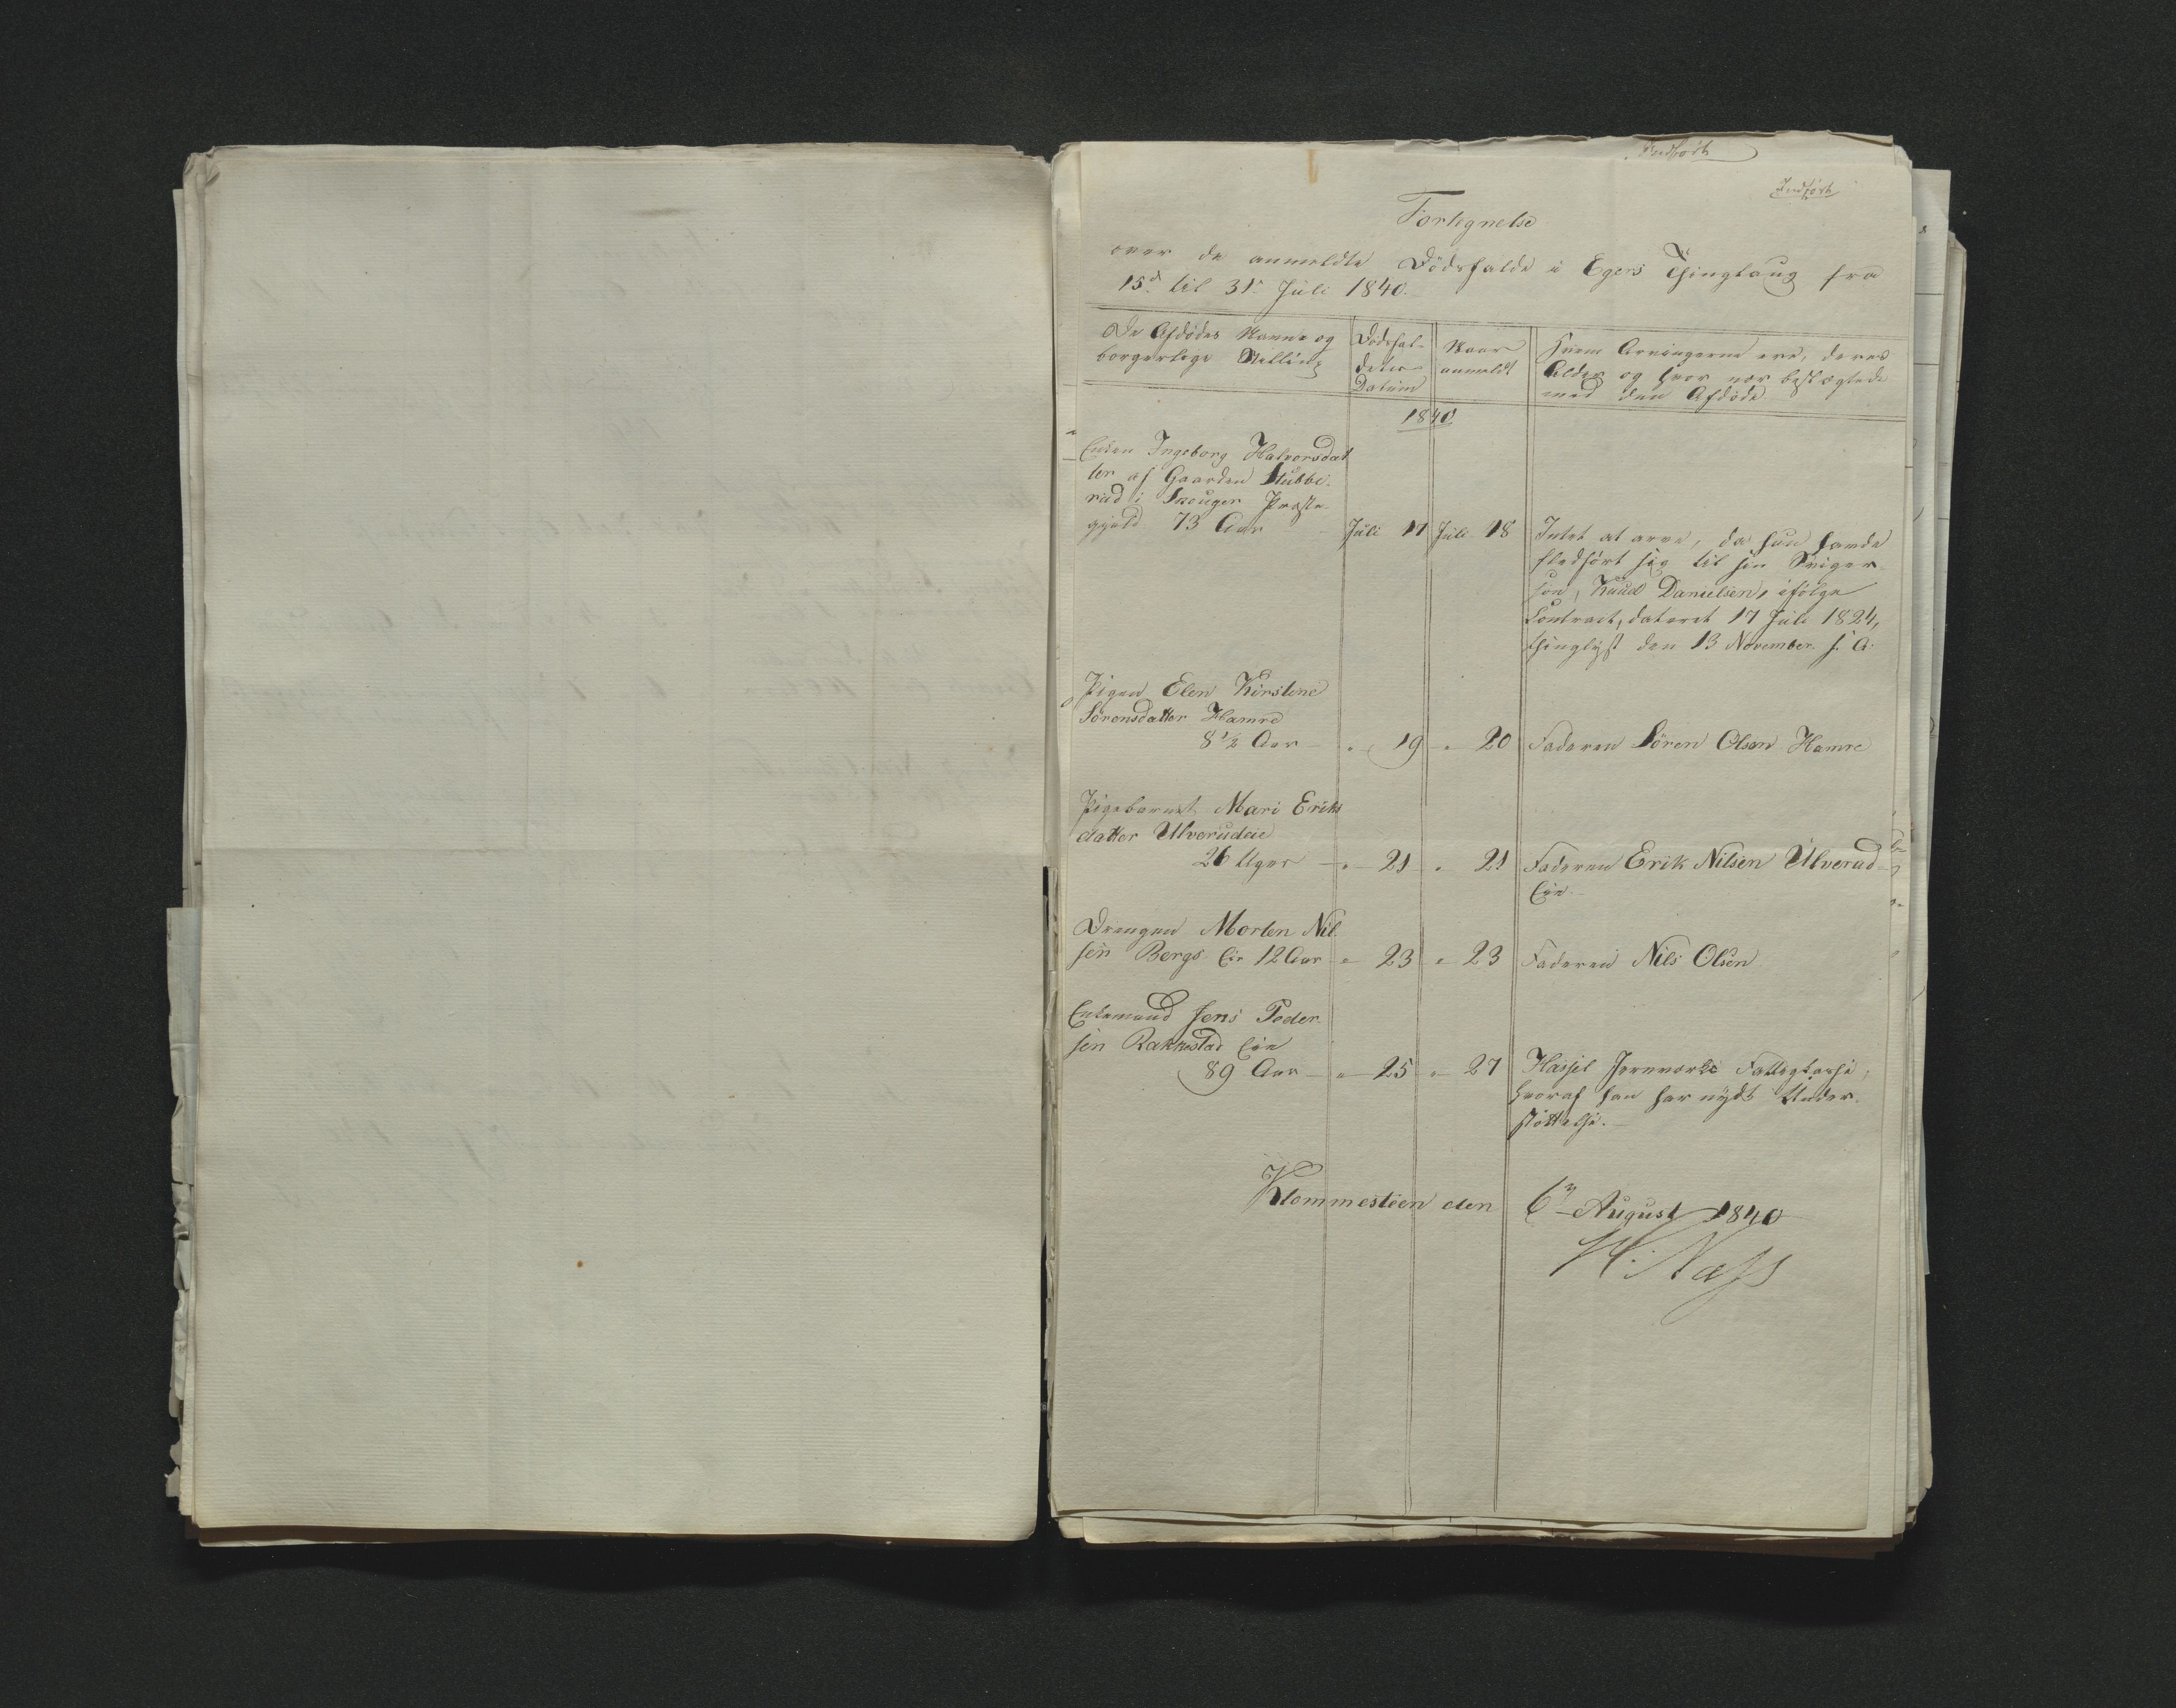 Indført
Indført
Fortegnelse
over de anmeldte Dödsfalde i Egers Thinglaug fra
15d til 31te Juli 1840.
De Afdödes Navne og
borgerlige Stilling
Dödsfal-
dets
Datum
Naar
anmeldt
Hvem Arvingerne ere, deres
Alder og hvor nær beslægtede
med den Afdöde
1840
Enken Ingeborg Halvorsdat
ter af Gaarden Stubbe-
rud i Skouger Præste-
gjeld 73 Aar - Juli 17 Juli 18 Intet at arve, da hun havde
fledført sig til sin Sviger-
sön, Knud Danielsen, ifölge
Contract, dateret 17 Juli 1824,
thinglyst den 13 November s. A.
Pigen Elen Kirstine
Sörensdatter Hamre
8 1/2 Aar - " 19 " 20 Faderen Sören Olsen Hamre
Pigebarnet Mari Eriks
datter Ulverudeie
26 Uger - " 21 " 21 Faderen Erik Nilsen Ulverud-
Eie.
Drengen Morten Nil
sen Bergs Eie 12 Aar " 23 " 23 Faderen Nils Olsen
Enkemand Jens Peder
sen Rakkestad Eie
89 Aar - " 25 " 27 Hassel Jernværks Fattigkasse,
hvoraf han har nydt Under-
støttelse.
Klommesteen den 6te August 1840
H. Næss